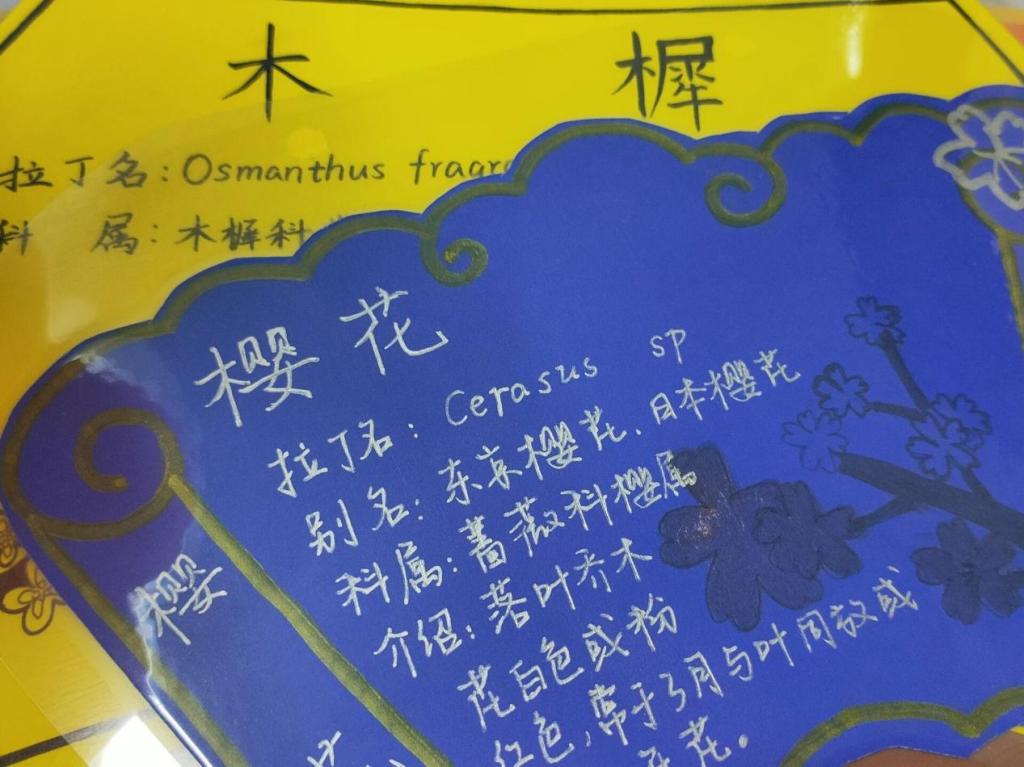 木樨
拉丁名：Osmanthus
科 属：木樨科
樱花
拉丁名：Cerasus sp
别名：东京樱花、日本樱花
科属：蔷薇科樱属
介绍：落叶乔木
花白色或粉
红色，常于3月与叶同放或
花。
樱